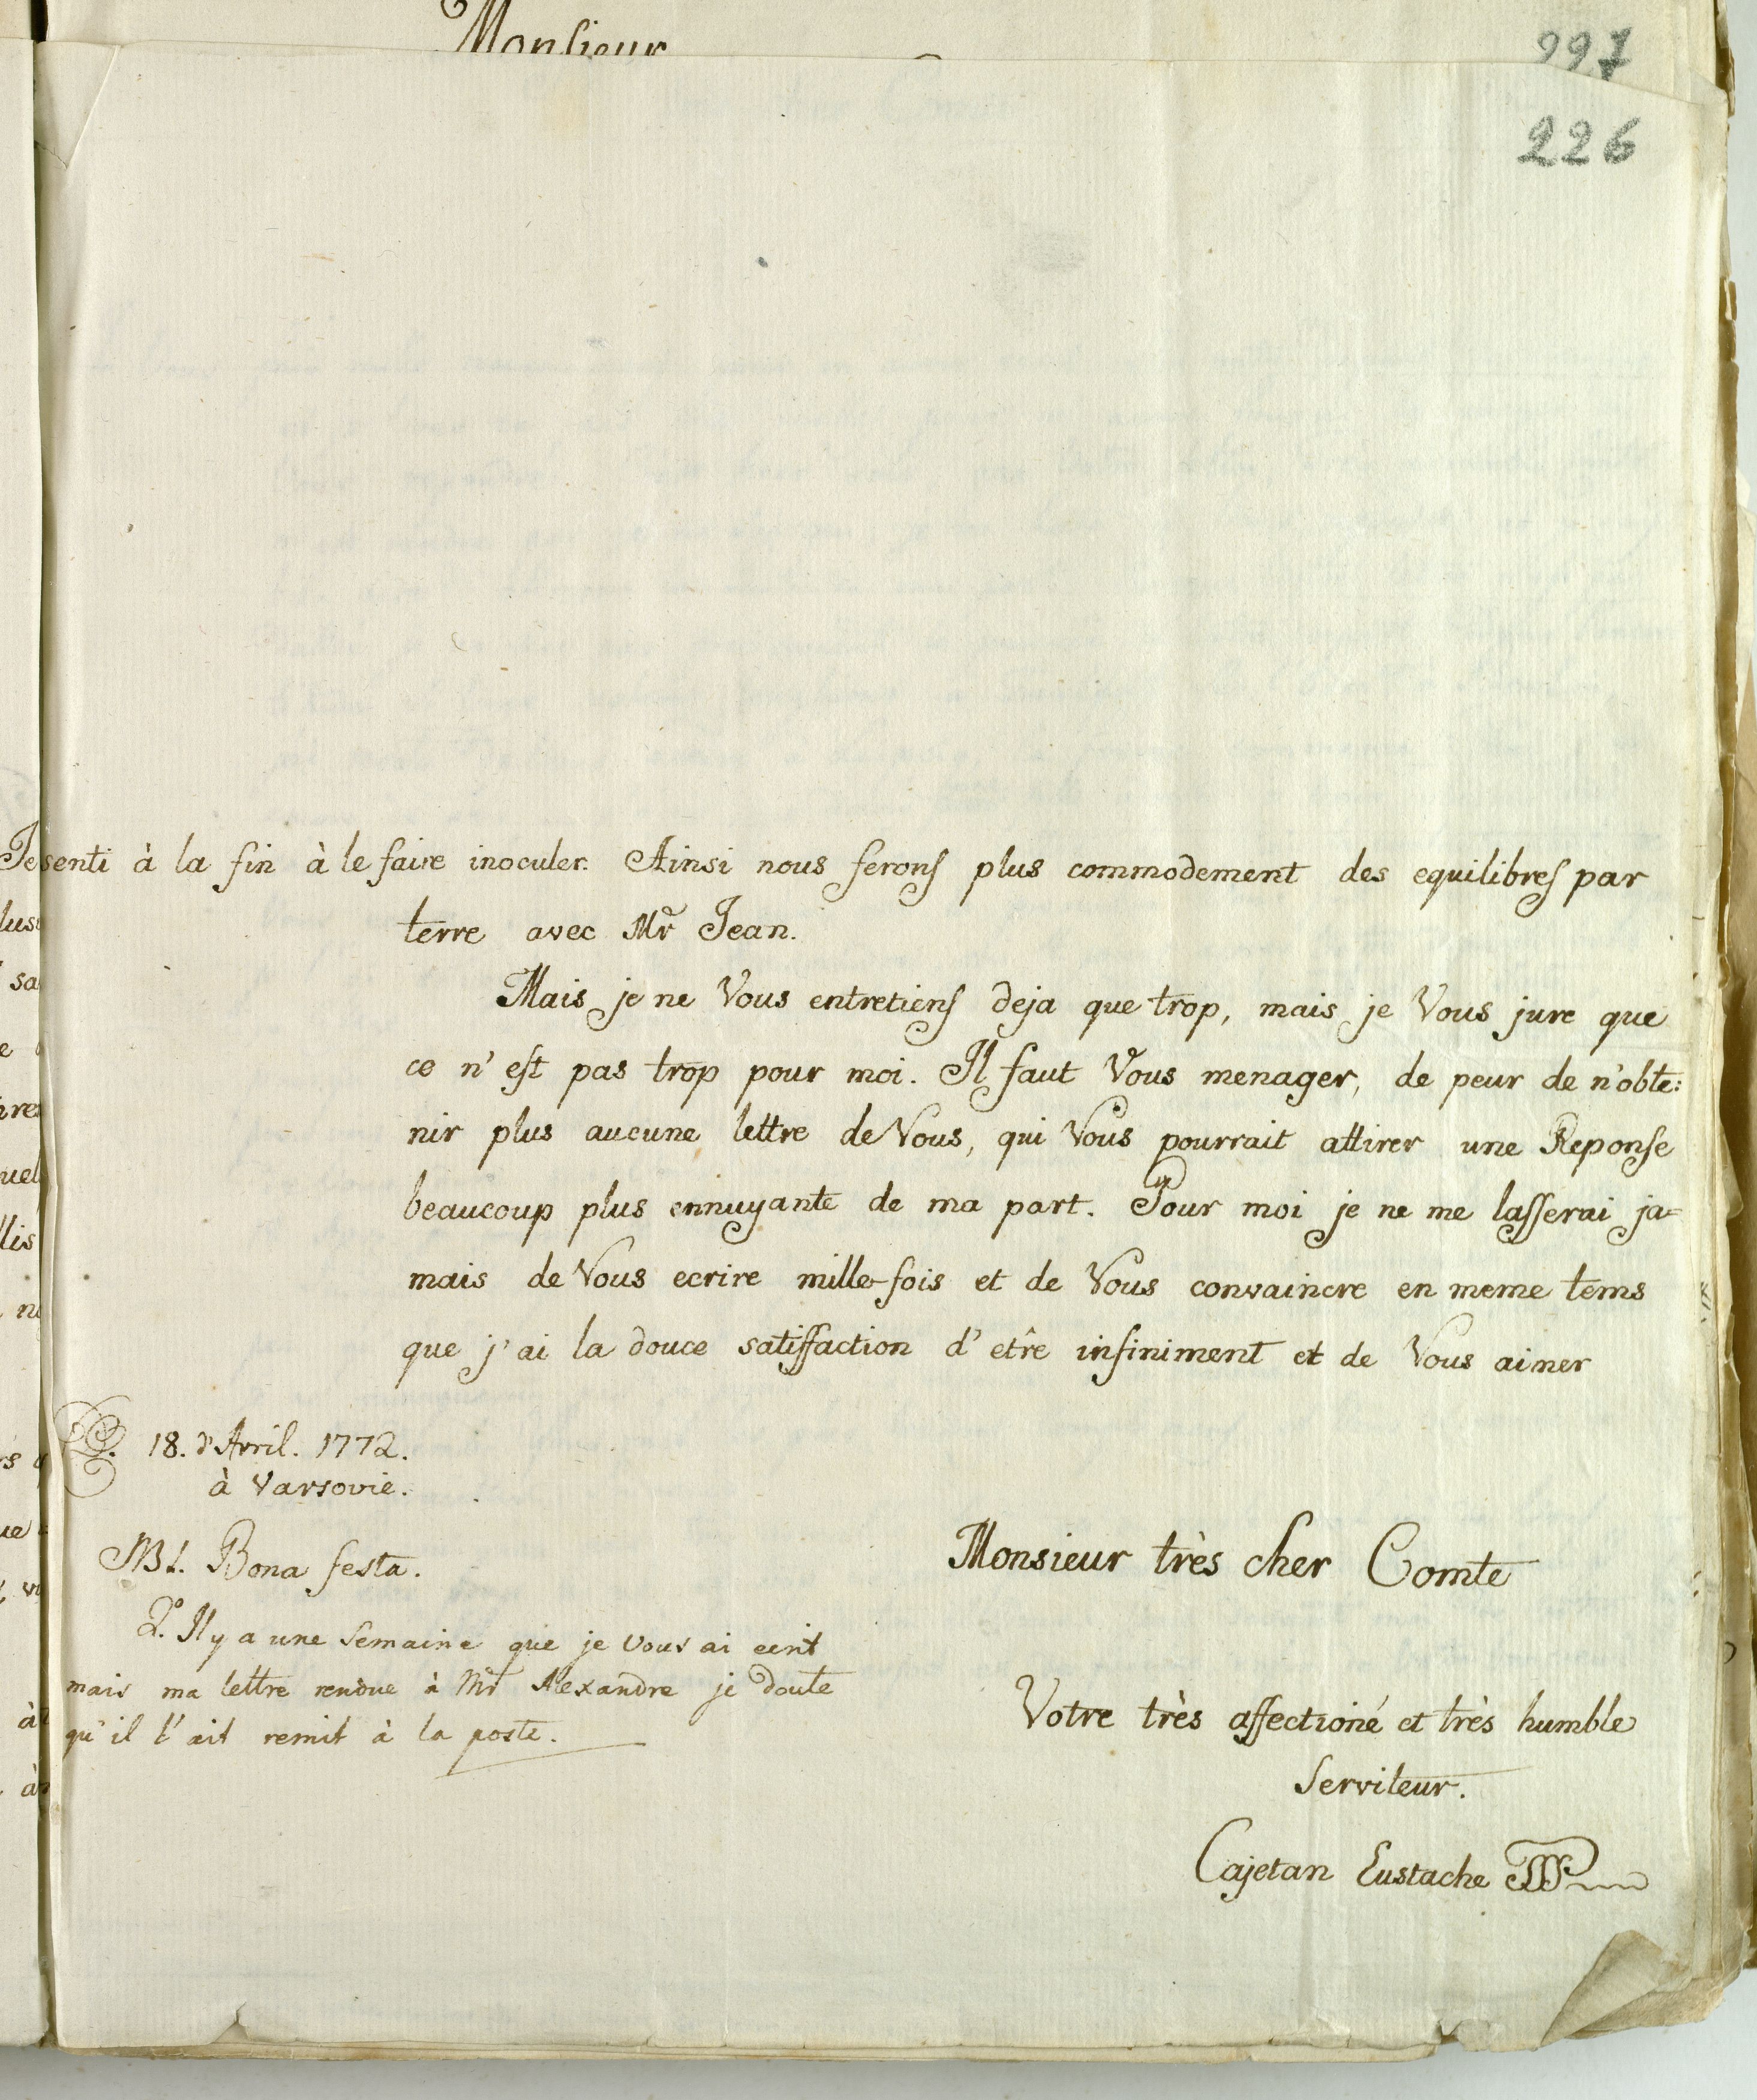 Monsieur
227
226
senti à la fin à le faire inoculer. Ainsi nous ferons plus commodement des equilibres par
terre avec Mr Jean.
Mais je ne Vous entretiens deja que trop, mais je Vous jure que
ce n'est pas trop pour moi. Il faut Vous menager, de peur de n'obte:
nir plus aucune lettre de Vous, qui Vous pourrait attirer une Reponse
beaucoup plus ennuyante de ma part. Pour moi je ne me lasserai ja=
mais de Vous ecrire mille fois et de Vous convaincre en meme tems
que j'ai la douce satisfaction d'etre infiniment et de Vous aimer
18. d'Avril. 1772.
à Varsovie.
NB 1. Bona festa.
2.° Il y a une semaine que je vous ai ecrit
mais ma lettre rendue à Mr Alexandre je doute
qu'il l'ait remit à la poste.
Monsieur très cher Comte
Votre très affectioné et très humble
Serviteur.
Cajetan Eustache